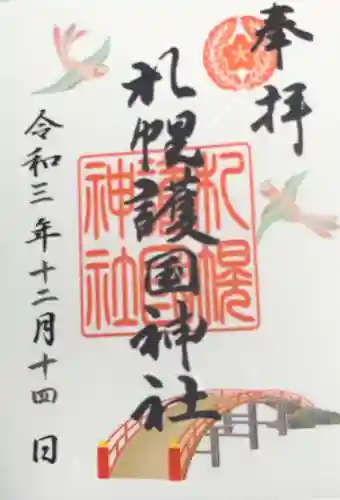 奉拝
札幌護国神社
札幌護国神社
令和三年十二月十四日